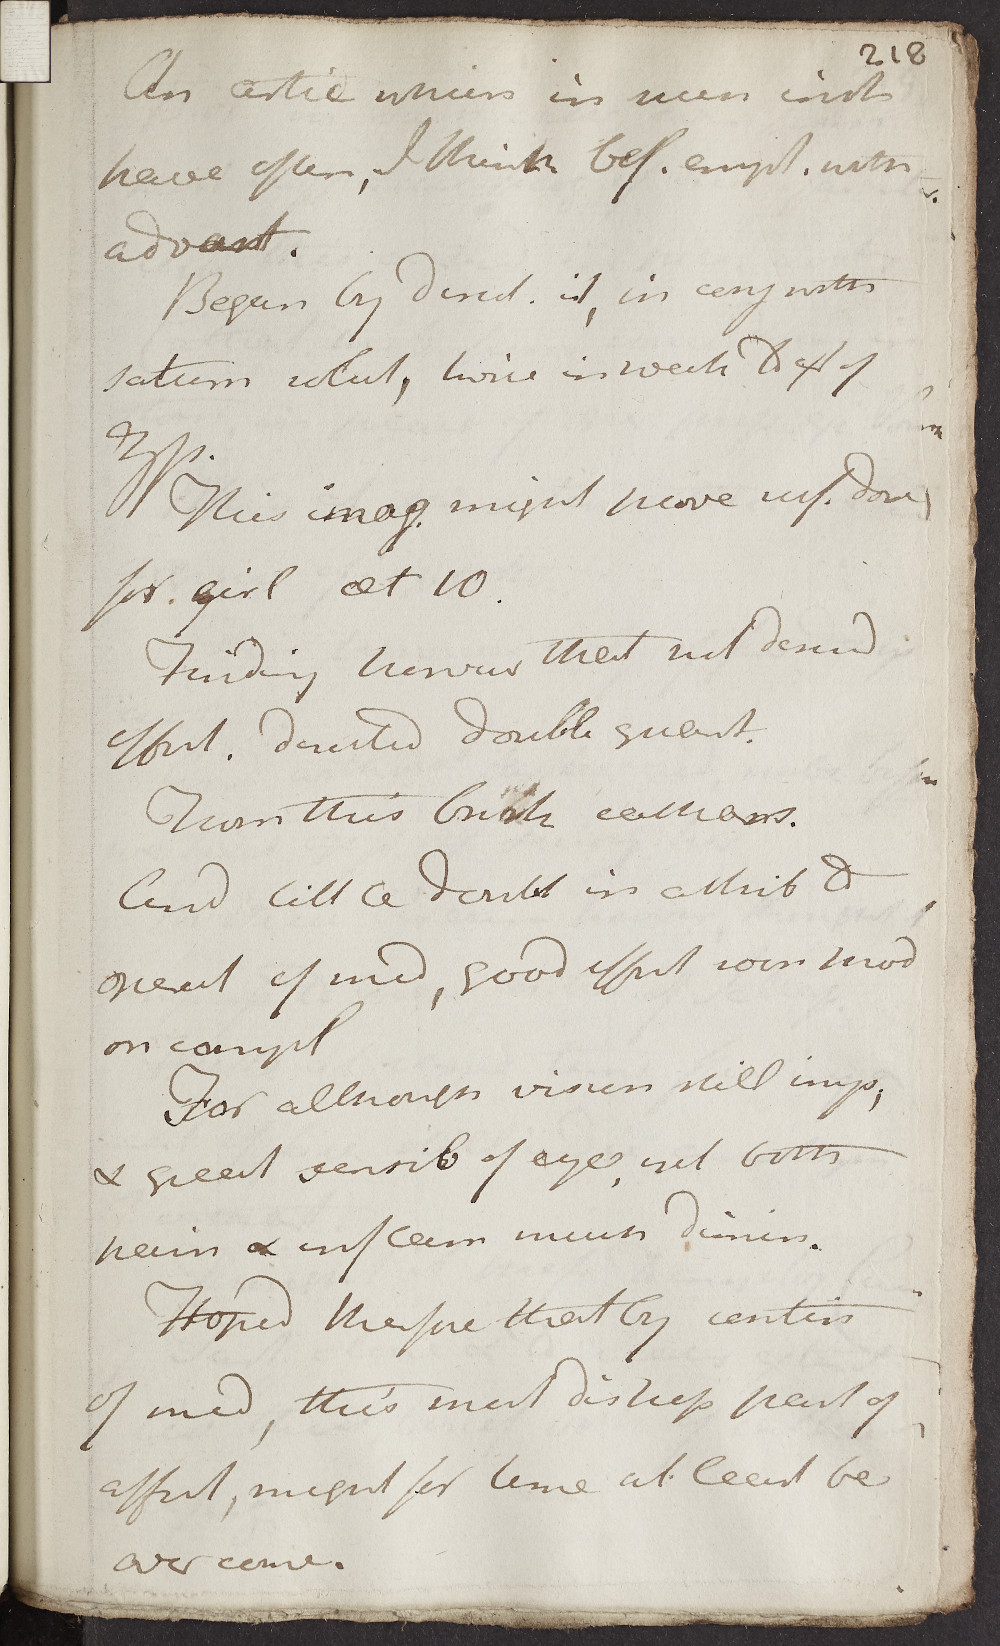 218
An artic which in men inst
have often, I think bef. empl. with
advant.
Began by direct. it, in conj with
saturn solut, twice in week to ext of
ʒſs.
This imag. might prove suf. dose
for girl æt 10.
Finding howevr that not desird
effect. directed double quant.
From this brisk cathars.
And litle doubt in attrib to
operat of med, good effect soon prod
on compl
For although vision still imp,
& great sensib of eye, yet both
pain & inflam much dimin.
Hoped therefore that by contin
of med, this most distress part of
affect, might for time at least be
overcome.